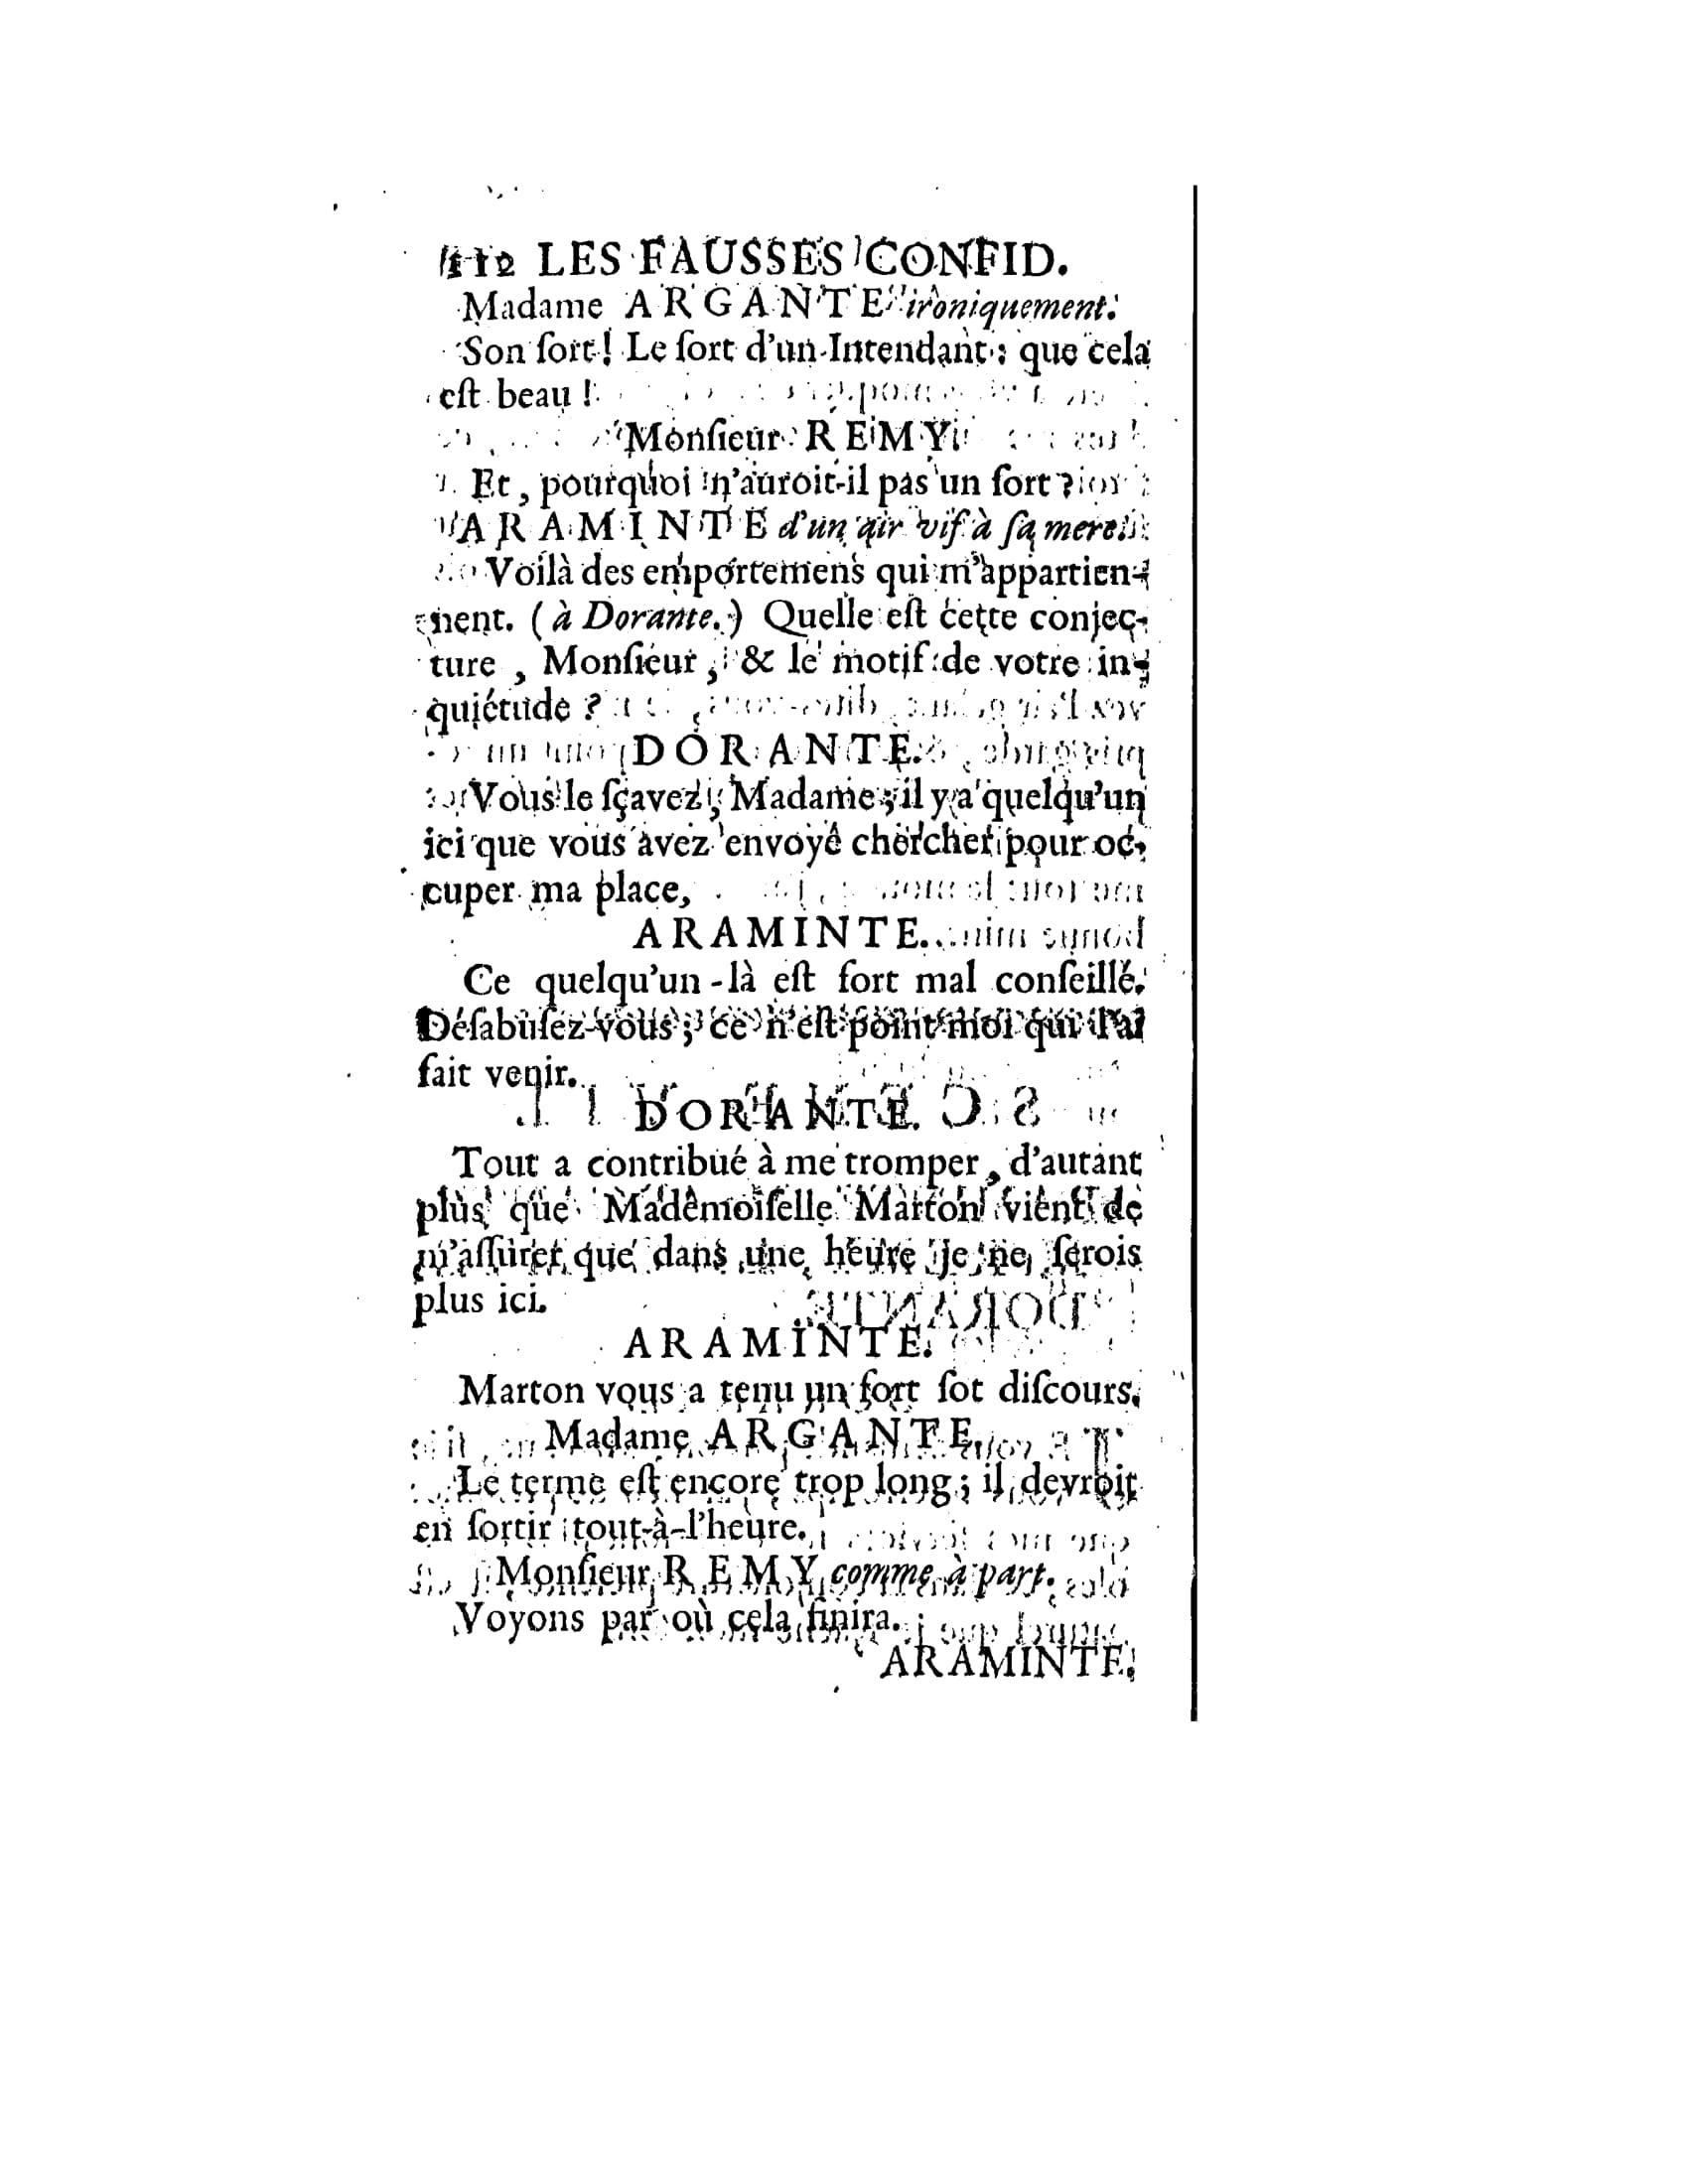 112 LES FAUSSES CONFID.
Madame ARGANTE ironiquement.
Son ſort! Le ſort d'un Intendant : que cela
eſt beau !
Monſieur REMY.
Et, pourquoi n'auroit-il pas un ſort ?
ARAMINTE d'un air vif à ſa mere.
Voilà des emportemens qui m'appartien-
nent. (à Dorante.) Quelle eſt cette conjec-
ture , Monſieur, & le motif de votre in-
quiétude ?
DORANTE.
Vous le ſçavez, Madame ; il y a quelqu'un
ici que vous avez envoyé chercher pour oc-
cuper ma place,
ARAMINTE.
Ce quelqu'un-là eſt fort mal conſeillé.
Déſabuſez-vous ; ce n'eſt point moi qui l'ai
fait venir.
DORANTE.
Tout a contribué à me tromper, d'autant
plus que Mademoiſelle Marton vient de
m'aſſurer que dans une heure je ne ſerois
plus ici.
ARAMINTE.
Marton vous a tenu un fort ſot diſcours.
Madame ARGANTE.
Le terme eſt encore trop long ; il devroit
en ſortir tout-à-l'heure.
Monſieur REMY comme à part.
Voyons par où cela finira.
ARAMINTE.